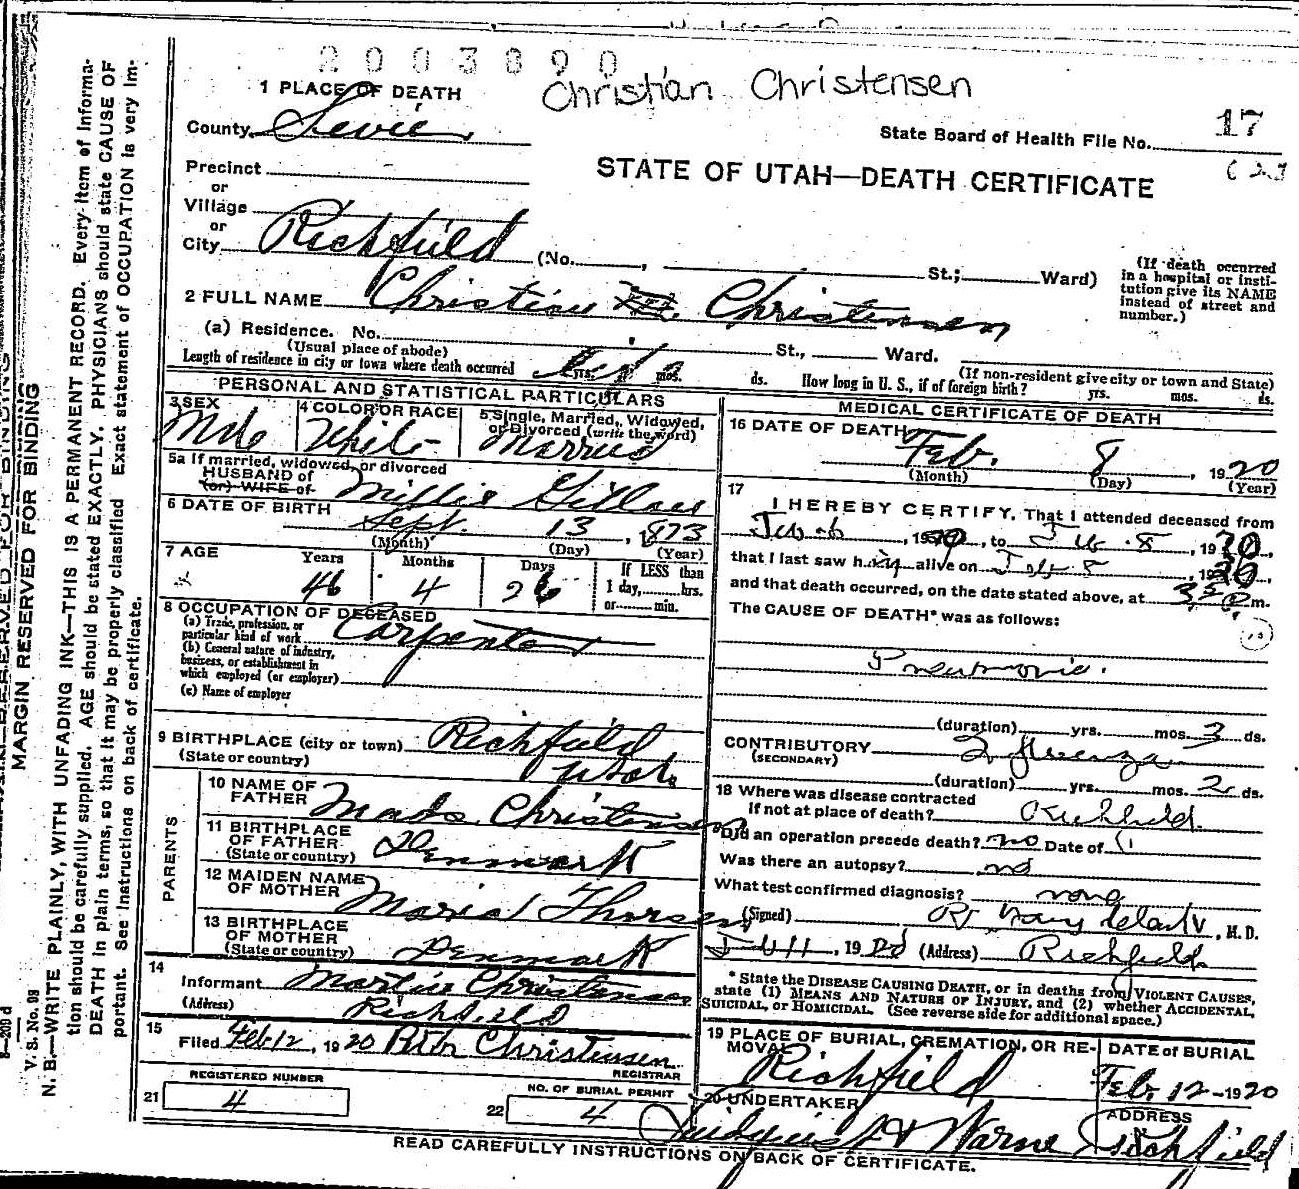 2003890
Christian Christensen
1 PLACE OF DEATH
County Sevier
State Board of Health File No. 17
623
Precinct
or
Village
or
City Richfield (No. , St.; Ward)
STATE OF UTAH—DEATH CERTIFICATE
(If death occurred
in a hospital or insti-
tution give its NAME
instead of street and
number.)
2 FULL NAME Christian Christensen
(a) Residence. No. St., Ward.
(Usual place of abode) (If non-resident give city or town and State)
Length of residence in city or town where death occurred Life yrs. mos. ds. How long in U. S., if of foreign birth? yrs. mos. ds.
PERSONAL AND STATISTICAL PARTICULARS
3 SEX
Male
4 COLOR OR RACE
White
5 Single, Married, Widowed,
or Divorced (write the word)
Married
5a If married, widowed, or divorced
HUSBAND of
(or) WIFE of
Millie
6 DATE OF BIRTH
Sept. 13, 1873
(Month) (Day) (Year)
7 AGE Years Months Days If LESS than
1 day, hrs.
or min.
46 4 26
8 OCCUPATION OF DECEASED
(a) Trade, profession, or
particular kind of work Carpenter
(b) General nature of industry,
business, or establishment in
which employed (or employer)
(c) Name of employer
9 BIRTHPLACE (city or town) Richfield
(State or country) Utah
PARENTS
10 NAME OF
FATHER Mads Christensen
11 BIRTHPLACE
OF FATHER
(State or country) Denmark
12 MAIDEN NAME
OF MOTHER Maria
13 BIRTHPLACE
OF MOTHER
(State or country) Denmark
14
Informant Christensen
(Address) Richfield
15
Filed Feb 12, 1920 Christensen
REGISTRAR
REGISTERED NUMBER
21 4
NO. OF BURIAL PERMIT
22 4
MEDICAL CERTIFICATE OF DEATH
16 DATE OF DEATH
Feb. 8, 1920
(Month) (Day) (Year)
17
I HEREBY CERTIFY, That I attended deceased from
Feb 6, 1920, to Feb 8, 1920,
that I last saw him alive on Feb 8, 1920
and that death occurred, on the date stated above, at m.
The CAUSE OF DEATH* was as follows:
10
Pneumonia.
(duration) yrs. mos. 3 ds.
CONTRIBUTORY Influenza
(SECONDARY)
(duration) yrs. mos. 2 ds.
18 Where was disease contracted
if not at place of death? Richfield
Did an operation precede death? no Date of
Was there an autopsy? no
What test confirmed diagnosis? none
(Signed) , M. D.
Feb 11, 1920 (Address) Richfield
* State the DISEASE CAUSING DEATH, or in deaths from VIOLENT CAUSES,
state (1) MEANS AND NATURE OF INJURY, and (2) whether ACCIDENTAL,
SUICIDAL, or HOMICIDAL. (See reverse side for additional space.)
19 PLACE OF BURIAL, CREMATION, OR RE-
MOVAL
Richfield
DATE of BURIAL
Feb. 12-1920
20 UNDERTAKER
Warne
ADDRESS
Richfield
READ CAREFULLY INSTRUCTIONS ON BACK OF CERTIFICATE.
MARGIN RESERVED FOR BINDING
V. S. No. 99
N. B.—WRITE PLAINLY, WITH UNFADING INK—THIS IS A PERMANENT RECORD. Every item of informa-
tion should be carefully supplied. AGE should be stated EXACTLY. PHYSICIANS should state CAUSE OF
DEATH in plain terms, so that it may be properly classified. Exact statement of OCCUPATION is very im-
portant. See instructions on back of certificate.